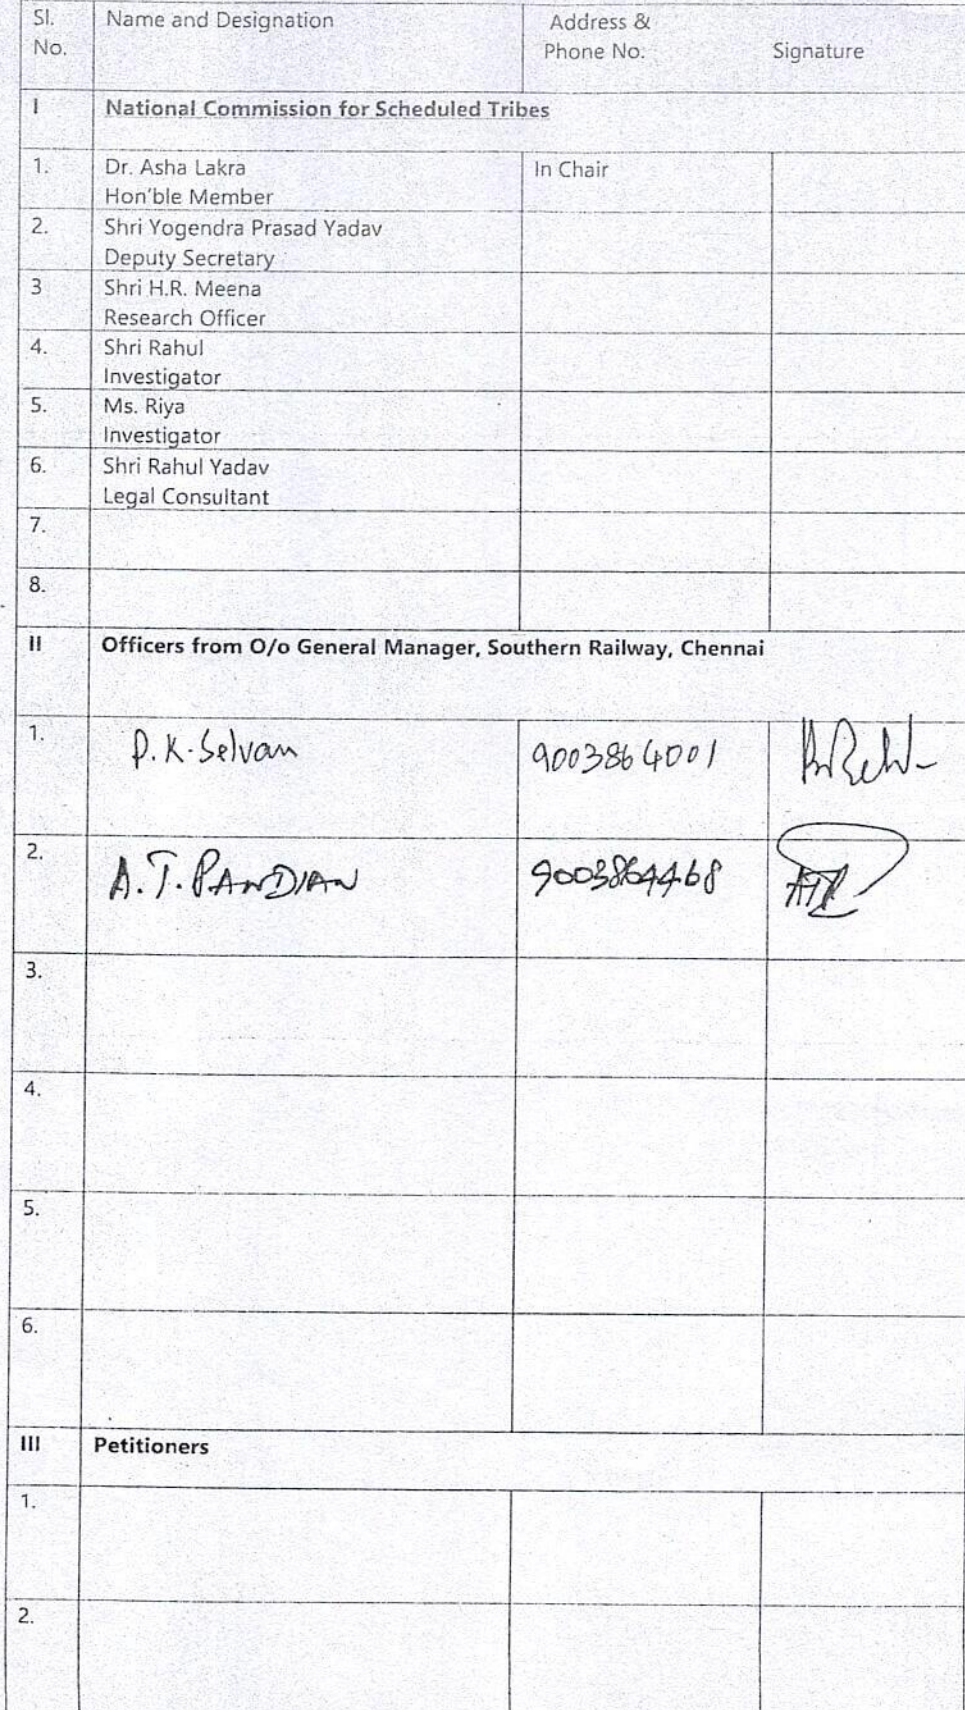 Sl. Name and Designation Address &
No. Phone No. Signature
I National Commission for Scheduled Tribes
1. Dr. Asha Lakra In Chair
Hon'ble Member
2. Shri Yogendra Prasad Yadav
Deputy Secretary
3 Shri H.R. Meena
Research Officer
4. Shri Rahul
Investigator
5. Ms. Riya
Investigator
6. Shri Rahul Yadav
Legal Consultant
7.
8.
II Officers from O/o General Manager, Southern Railway, Chennai
1. P.K.Selvan 9003864001
2. A.T. PANDIAN 9003864468
3.
4.
5.
6.
III Petitioners
1.
2.